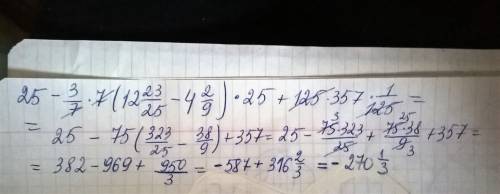 25 - 3/7 · 7 (12 23/25 - 4 2/9) · 25 + 125 · 357 · 1/125 =
= 25 - 75 (323/25 - 38/9) + 357 = 25 - 75·323/25 + 75·38/9 + 357 =
= 382 - 969 + 950/3 = -587 + 316 2/3 = -270 1/3